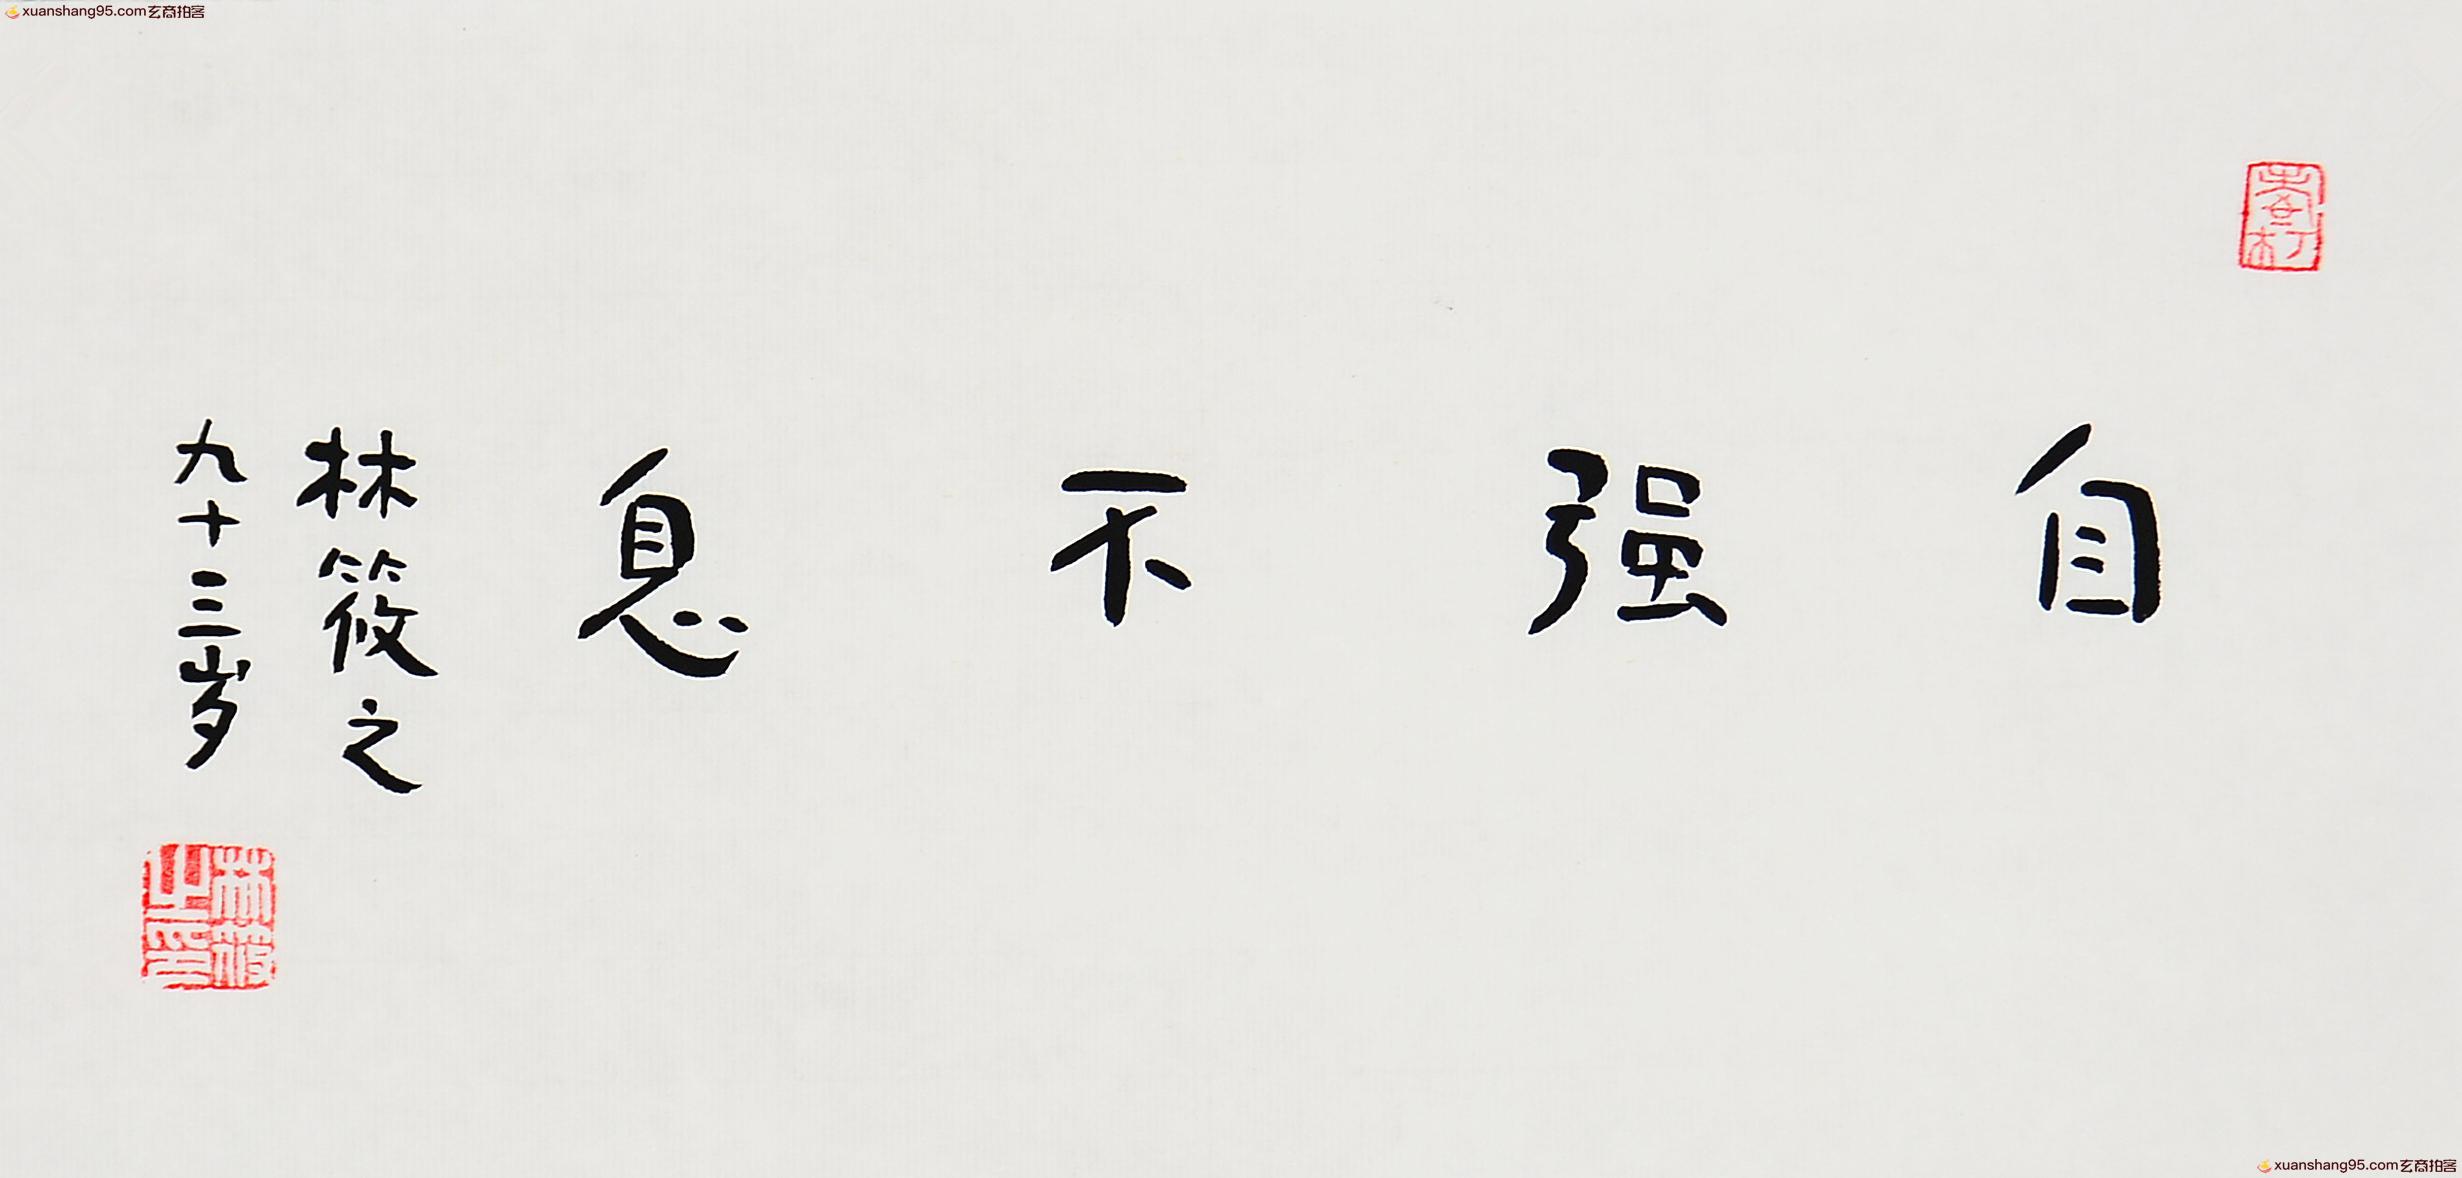 xuanshang95.com玄商拍客
自强不息
林筱之
九十三岁
林筱之印
xuanshang95.com玄商拍客